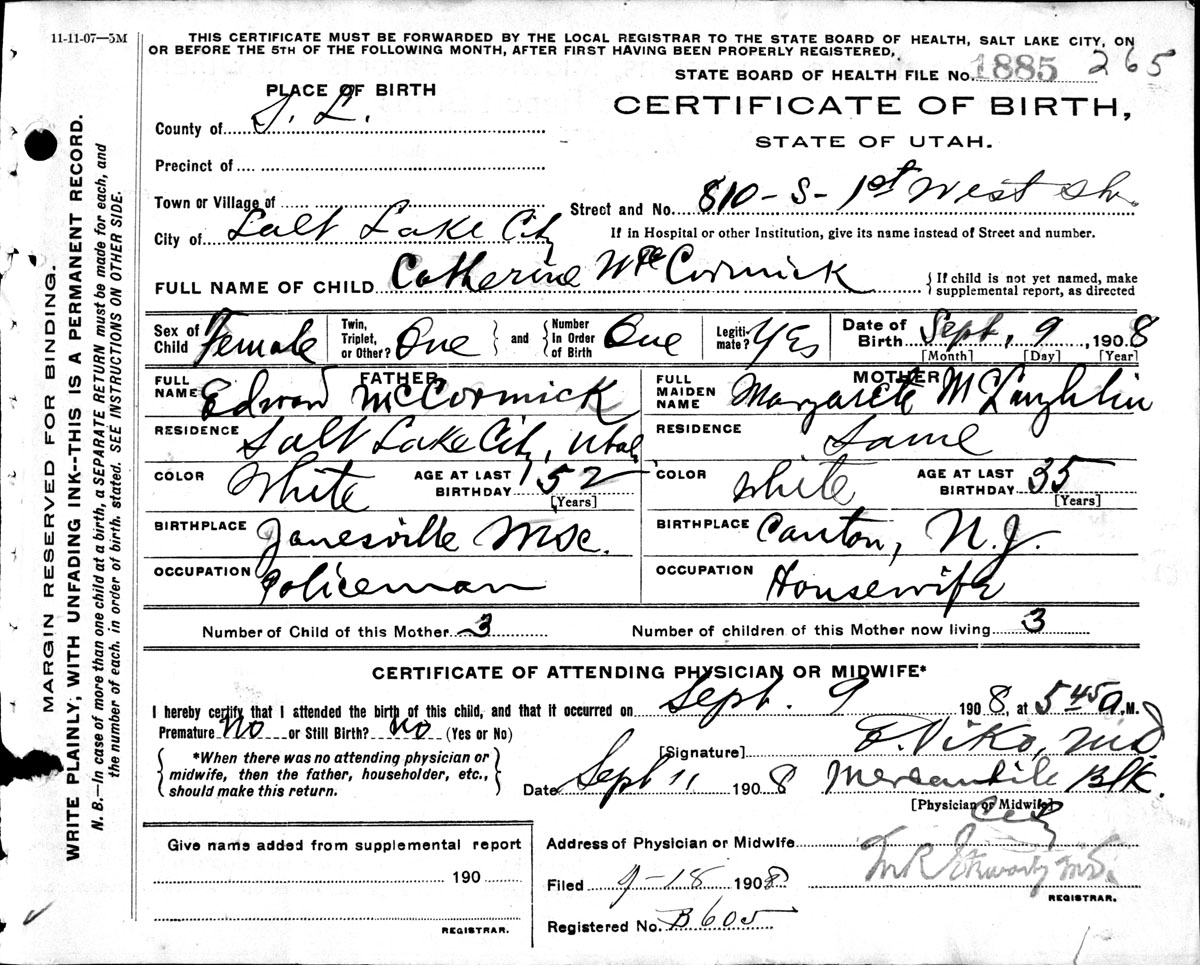 11-11-07—5M
THIS CERTIFICATE MUST BE FORWARDED BY THE LOCAL REGISTRAR TO THE STATE BOARD OF HEALTH, SALT LAKE CITY, ON
OR BEFORE THE 5TH OF THE FOLLOWING MONTH, AFTER FIRST HAVING BEEN PROPERLY REGISTERED,
STATE BOARD OF HEALTH FILE No. 1885 265
PLACE OF BIRTH
CERTIFICATE OF BIRTH,
County of S. L.
STATE OF UTAH.
Precinct of
Town or Village of
Street and No. 810 - S - 1st West
City of Salt Lake City
If in Hospital or other Institution, give its name instead of Street and number.
FULL NAME OF CHILD Catherine McCormick {If child is not yet named, make supplemental report, as directed
Sex of Child Female Twin, Triplet, or Other? One } and { Number In Order of Birth One Legiti-mate? Yes Date of Birth Sept. 9, 1908
[Month] [Day] [Year]
FATHER
FULL NAME Edward McCormick
RESIDENCE Salt Lake City, Utah
COLOR White AGE AT LAST BIRTHDAY 52
[Years]
BIRTHPLACE Janesville
OCCUPATION Policeman
MOTHER
FULL MAIDEN NAME Margarete McLaughlin
RESIDENCE Same
COLOR White AGE AT LAST BIRTHDAY 35
[Years]
BIRTHPLACE Canton, N.J.
OCCUPATION Housewife
Number of Child of this Mother 3 Number of children of this Mother now living 3
CERTIFICATE OF ATTENDING PHYSICIAN OR MIDWIFE*
I hereby certify that I attended the birth of this child, and that it occurred on Sept. 9 1908, at 5 45 A.M.
Premature No or Still Birth? No (Yes or No)
{ *When there was no attending physician or
midwife, then the father, householder, etc.,
should make this return. }
[Signature] E. Viko, M.D.
Date Sept 11 1908 Mercantile Blk.
[Physician or Midwife]
Address of Physician or Midwife City
Filed 9-18 1908
REGISTRAR.
Registered No. B605
Give name added from supplemental report
190
REGISTRAR.
MARGIN RESERVED FOR BINDING.
WRITE PLAINLY, WITH UNFADING INK--THIS IS A PERMANENT RECORD.
N. B.—In case of more than one child at a birth, a SEPARATE RETURN must be made for each, and
the number of each. in order of birth. stated. SEE INSTRUCTIONS ON OTHER SIDE.